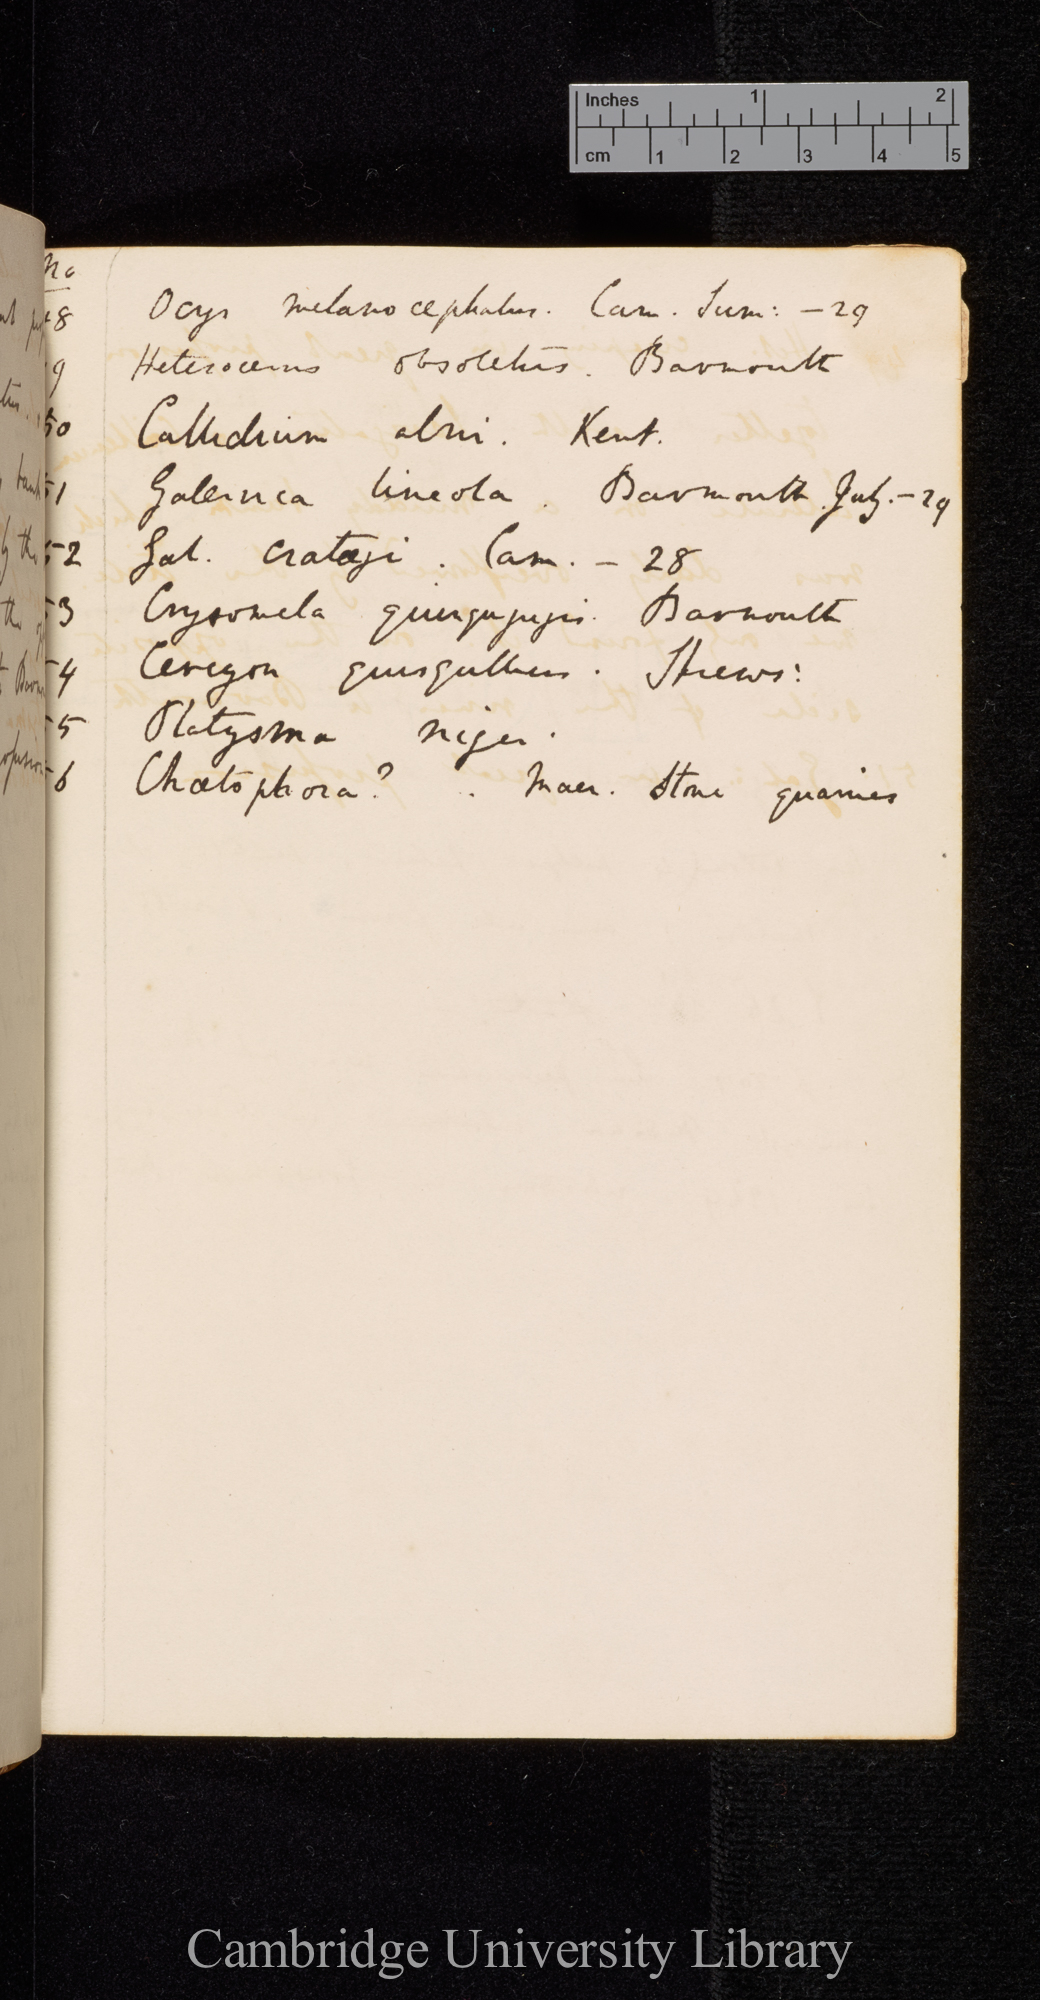 Inches 1 2
cm 1 2 3 4 5
No
48 Ocys melanocephalus. Cam. Sum: – 29
49 Heterocerus obsoletus. Barmouth
50 Callidium alni. Kent.
51 Galeruca lineola. Barmouth July. – 29
52 Gal. cratægi. Cam. – 28
53 Crysomela Barmouth
54 Cercyon quisquilius. Shrews:
55 Platysma niger.
56 Chætophora? .. Maer. Stone quarries
Cambridge University Library